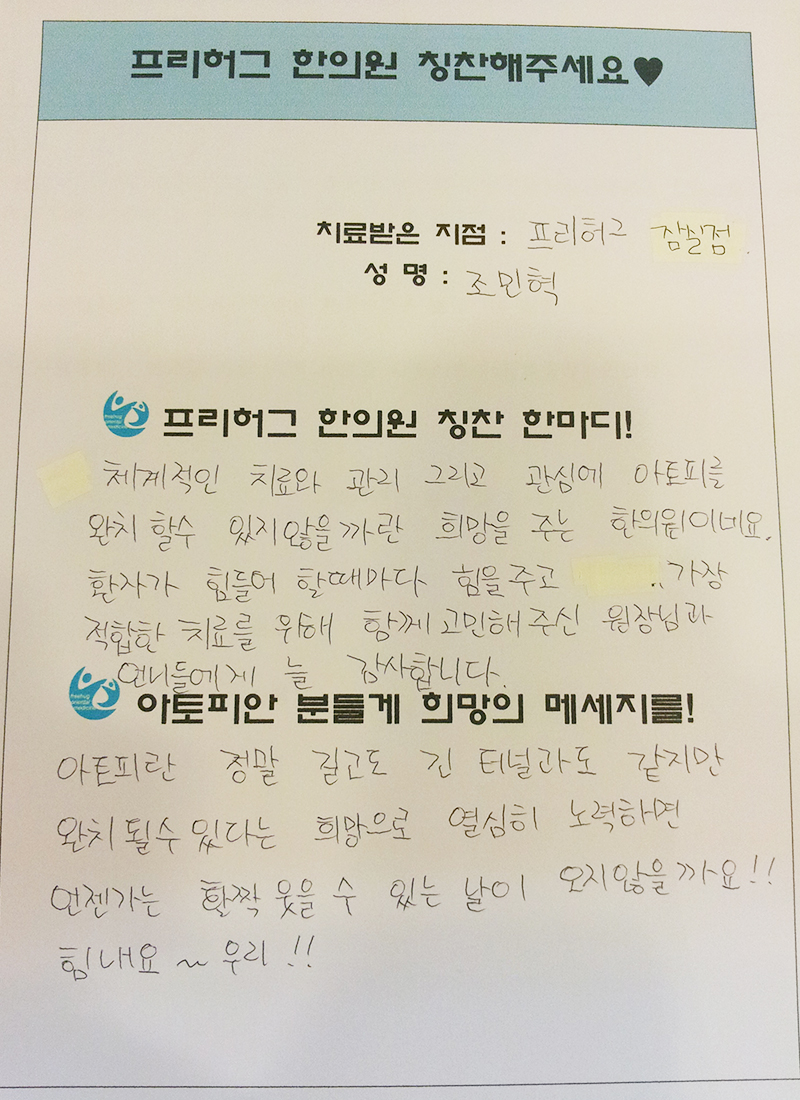 프리허그 한의원 칭찬해주세요♥
치료받은 지점 : 프리허그 잠실점
성 명 : 조민혁
프리허그 한의원 칭찬 한마디!
체계적인 치료와 관리 그리고 관심에 아토피를
완치 할수 있지않을까란 희망을 주는 한의원이네요.
환자가 힘들어 할때마다 힘을주고 ..가장
적합한 치료를 위해 함께고민해주신 원장님과
언니들에게 늘 감사합니다.
아토피안 분들게 희망의 메세지를!
아토피란 정말 길고도 긴 터널과도 같지만
완치될수있다는 희망으로 열심히 노력하면
언젠가는 활짝 웃을 수 있는 날이 오지않을까요!!
힘내요~우리!!